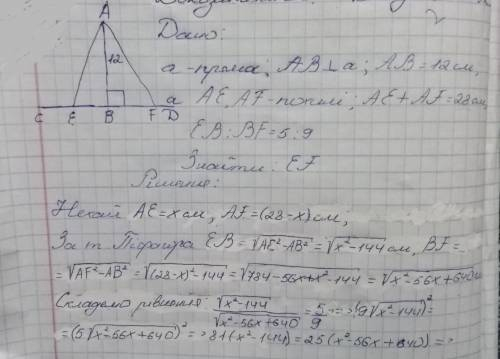 Дано:
а-пряма; AB⊥a; AB=12см,
AE, AF-похилі; AE+AF=28см,
EB:BF=5:9
Знайти: EF
A
12
a
C E B F D
Рішення:
Нехай AE=x см, AF=(28-x) см,
За т. Піфагора EB=√AE²-AB²=√x²-144 см, BF=
=√AF²-AB²=√(28-x)²-144=√784-56x+x²-144=√x²-56x+640 см
Складемо рівняння: √x²-144/√x²-56x+640=5/9=>(9√x²-144)²=
=(5√x²-56x+640)²=>81(x²-144)=25(x²-56x+640)=>